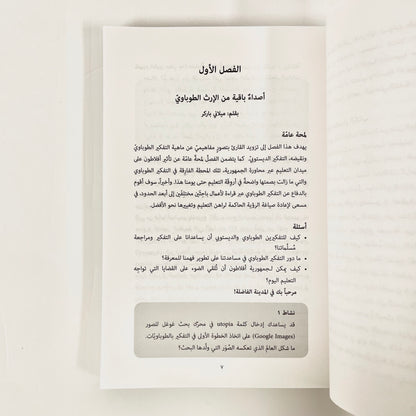 الفصل الأول
أصداءٌ باقية من الإرث الطوباويّ
بقلم: ميلاني باركر
لمحة عامّة
يهدف هذا الفصل إلى تزويد القارئ بتصور مفاهيميّ عن ماهية التفكير الطوباويّ
ونقيضه، التفكير الديستوبيّ. كما يتضمن الفصلُ لمحةً عامّة عن تأثير أفلاطون على
ميدان التعليم عبر محاورة الجمهورية، تلك المحطة الفارقة في التفكير الطوباويّ
والتي ما زالت بصمتها واضحةً في أروقة التعليم حتى يومنا هذا. وأخيراً، سوف أقوم
بالدفاع عن التفكير الطوباويّ عبر قراءةٍ لأعمال باحثين مختلفين إلى أبعد الحدود، في
مسعى لإعادة صياغة الرؤية الحاكمة لراهن التعليم وتغييرها نحو الأفضل.
أسئلة
• كيف للتفكيرين الطوباوي والديستوبي أن يساعداننا على التفكير ومراجعة
مُسلّماتنا؟
• ما دور التفكير الطوباوي في مساعدتنا على تطوير فهمنا للمعرفة؟
• كيف يمكن لجمهورية أفلاطون أن تُلقي الضوء على القضايا التي تواجه
التعليم اليوم؟
مرحباً بك في المدينة الفاضلة!
نشاط ١
قد يساعدك إدخال كلمة utopia في محرّك بحث غوغل للصور
(Google Images) على اتخاذ الخطوة الأولى في التفكير بالطوباويات.
ما شكل العالم الذي تعكسه الصُوَر التي ولّدها البحث؟
٧